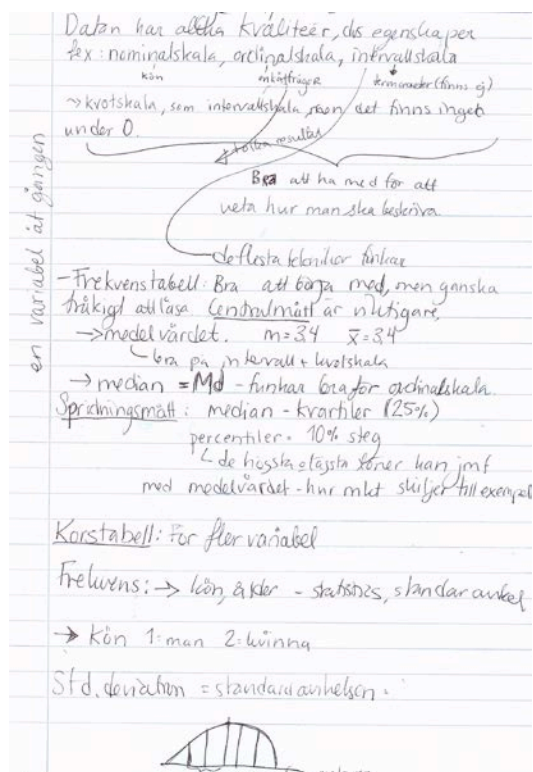 Datan har alltså kvaliteér, dvs egenskaper
tex: nominalskala, ordinalskala, intervallskala
kön enkätfrågor termometer (finns ej)
→ kvotskala, som intervallskala, men det finns inget
under 0.
tolka resultat
Bra att ha med för att
veta hur man ska beskriva.
de flesta tekniker funkar
en variabel åt gången
- Frekvenstabell: Bra att börja med, men ganska
tråkigt att läsa. Centralmått är viktigare,
→ medelvärdet. m=3,4 x̄=3,4
bra på intervall + kvotskala
→ median = Md - funkar bra för ordinalskala.
Spridningsmått: median - kvartiler (25%)
percentiler. 10% steg
de högsta o lägsta löner kan jmf
med medelvärdet - hur mkt skiljer till exempel
Korstabell: För fler variabel
Frekvens: → kön, ålder - statistics, standar avikel
→ Kön 1: man 2: kvinna
Std. deviation = standardavikelsen.